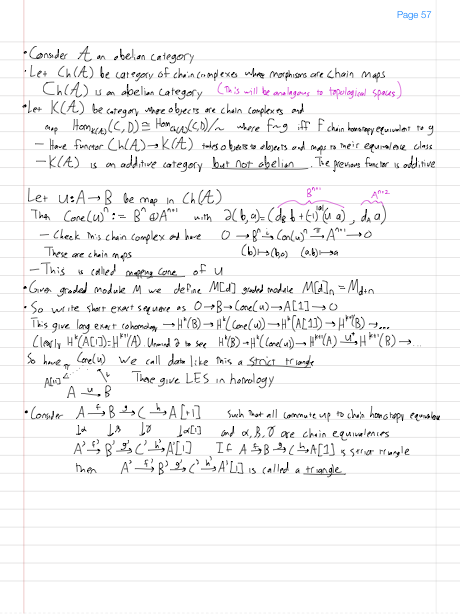 Page 57
• Consider A an abelian category
• Let Ch(A) be category of chain complexes where morphisms are chain maps
Ch(A) is an abelian category (This will be analogous to topological spaces)
• Let K(A) be category where objects are chain complexes and
map Hom_{K(A)}(C,D) ≅ Hom_{Ch(A)}(C,D)/~ where f~g iff f chain homotopy equivalent to g
– Have functor Ch(A) → K(A) takes objects to objects and maps to their equivalence class
– K(A) is an additive category but not abelian. The previous functor is additive
Let u: A → B be map in Ch(A)
B^{n+1} A^{n+2}
Then Cone(u)^n := B^n ⊕ A^{n+1} with ∂(b,a) = (d_B b + (-1)^{|a|} u a, d_A a)
– Check this chain complex and have 0 → B^n → Con(u)^n → A^{n+1} → 0
These are chain maps (b) ↦ (b,0) (a,b) ↦ a
– This is called mapping cone of u
• Given graded module M we define M[d] graded module M[d]_n = M_{d+n}
• So write short exact sequence as 0 → B → Cone(u) → A[1] → 0
This give long exact cohomology → H^k(B) → H^k(Cone(u)) → H^k(A[1]) → H^{k+1}(B) → ...
Clearly H^k(A[1]) = H^{k+1}(A) Unwind ∂ to see H^k(B) → H^k(Cone(u)) → H^{k+1}(A) → H^{k+1}(B) → ...
So have Cone(u) We call data like this a strict triangle
A[1] These give LES in homology
A u→ B
• Consider A f→ B g→ C h→ A[+1] such that all commute up to chain homotopy equivalence
↓α ↓β ↓γ ↓α[1] and α, β, γ are chain equivalences
A' f'→ B' g'→ C' h'→ A'[1] If A f→ B g→ C h→ A[1] is strict triangle
then A' f'→ B' g'→ C' h'→ A'[1] is called a triangle